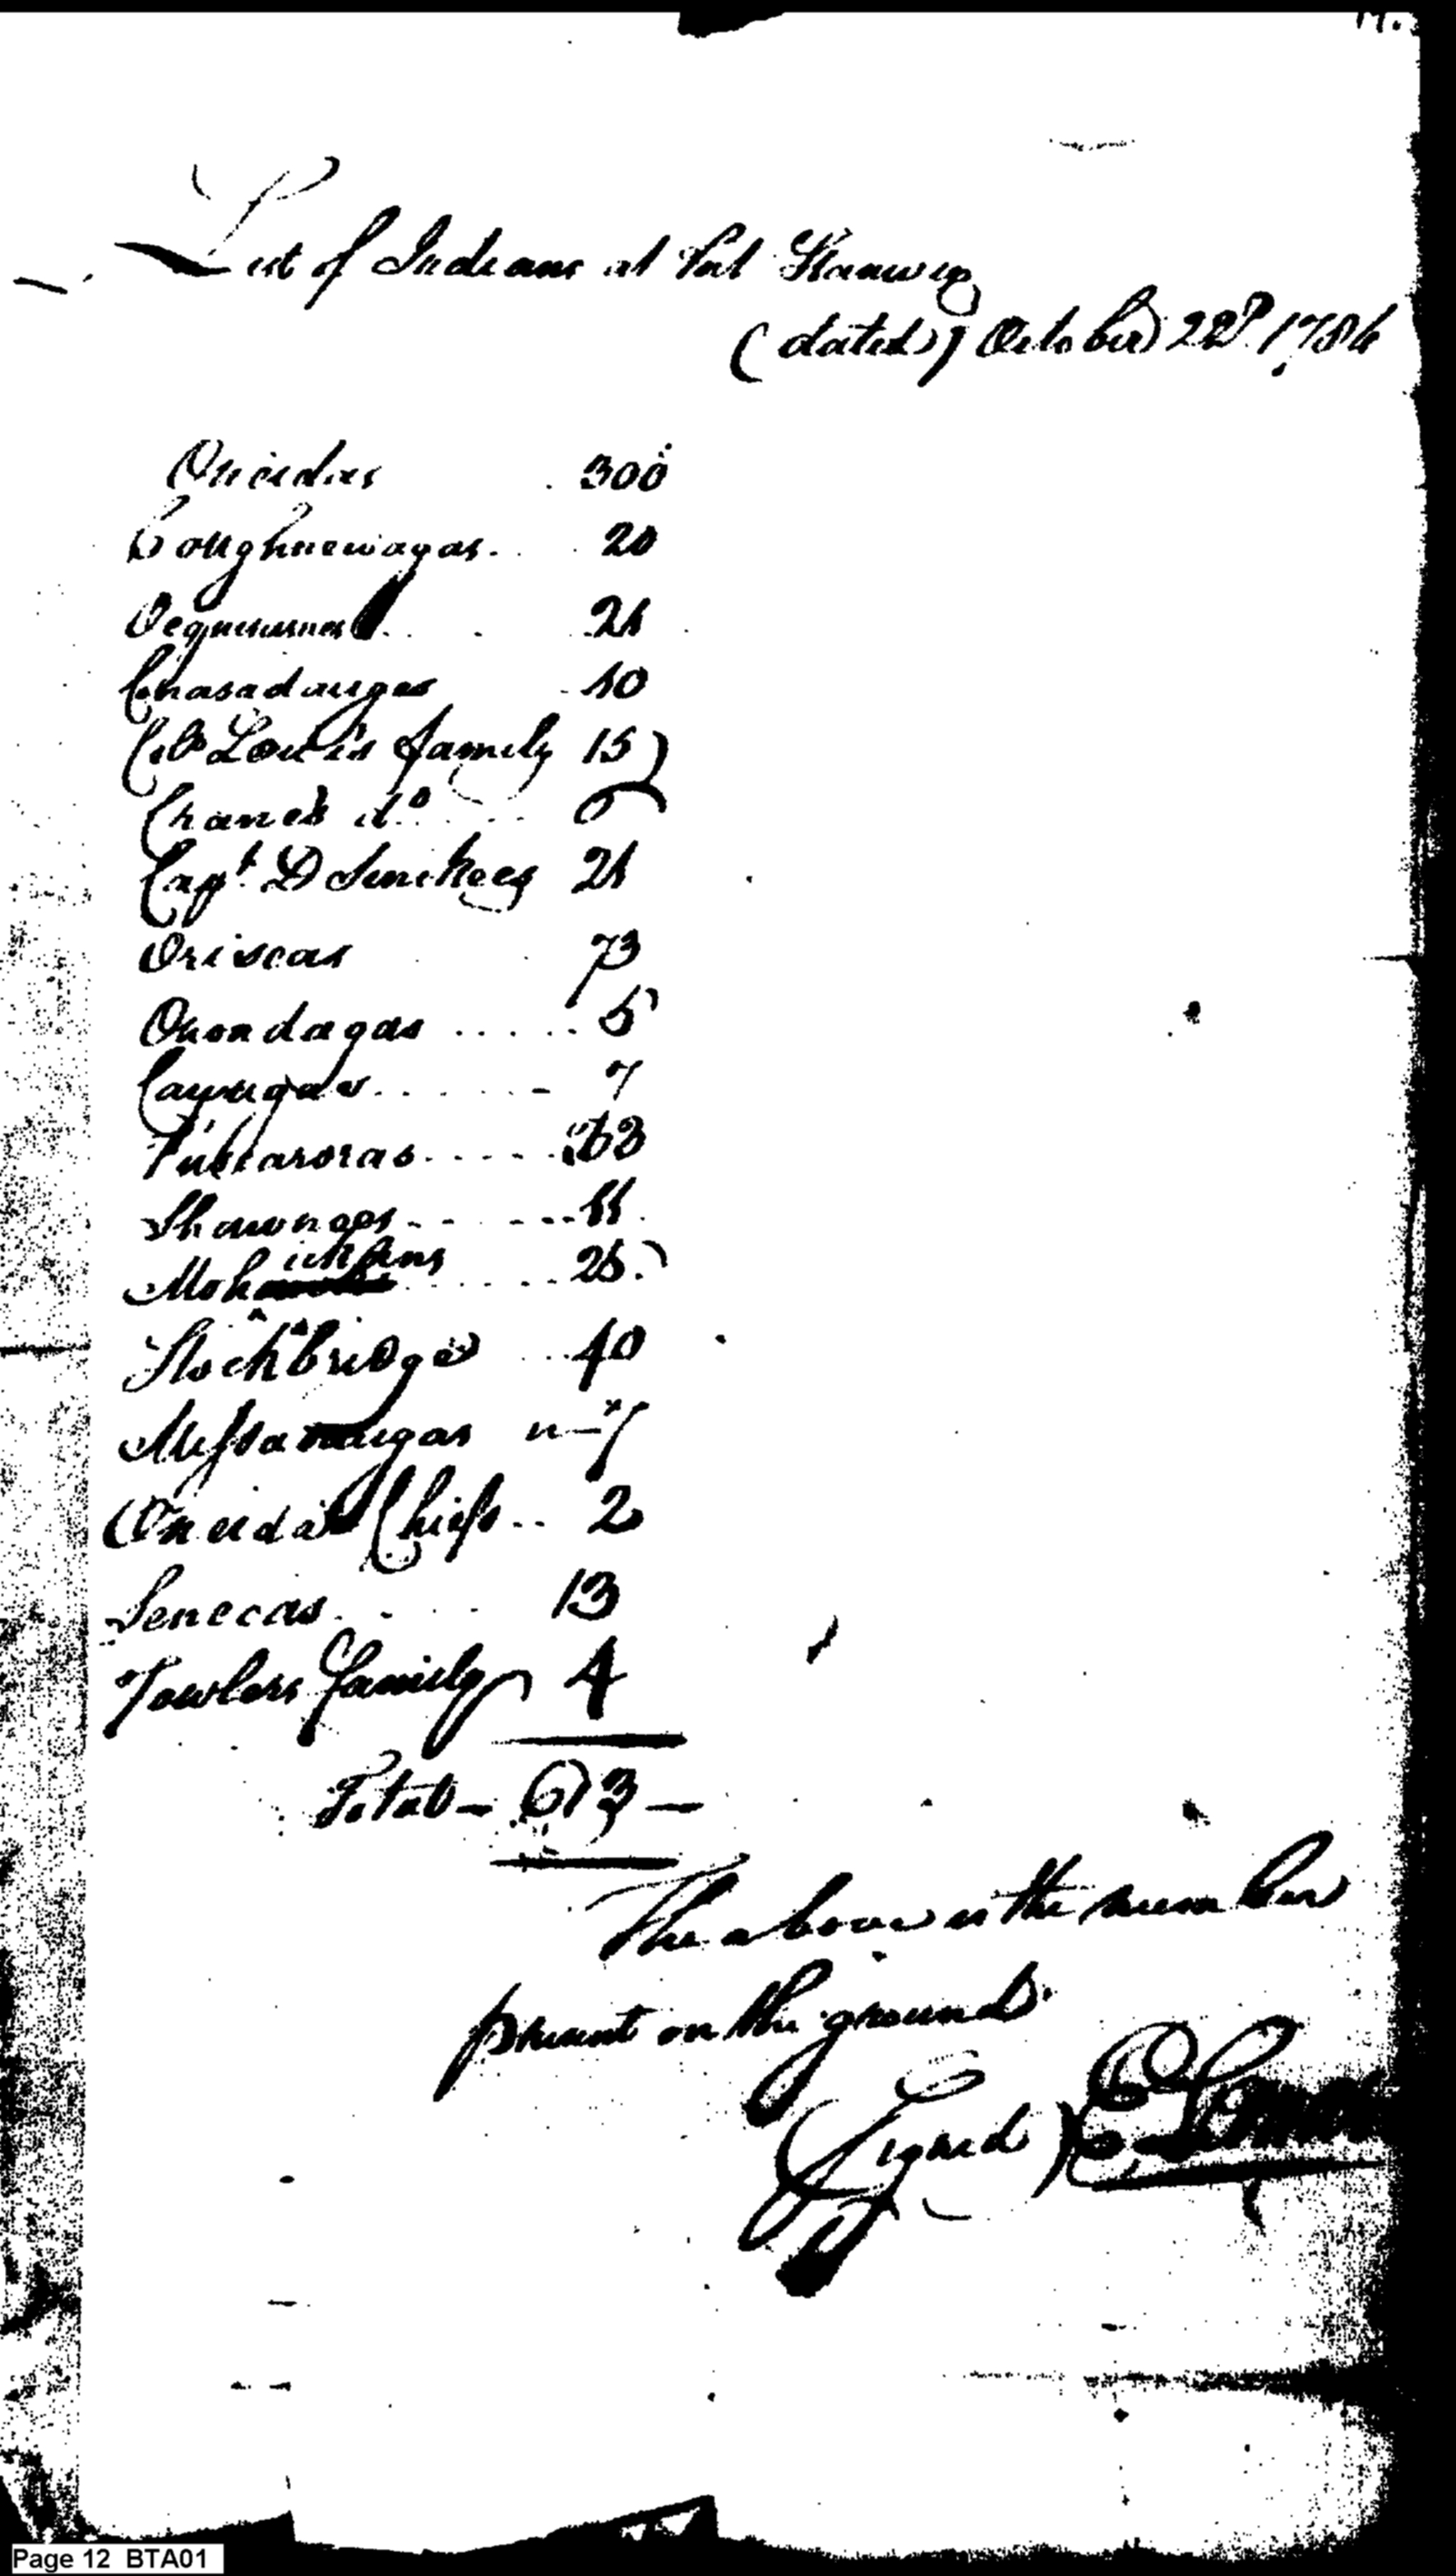 List of Indians at Fort Stanwix
(dated) October 22d. 1784
Oneidas . 300
Coughnewagas . . . 20
. . .
Cnasadauges
Col Louis family 15
Crane's do . . .
Capt. D
Oriscas . . 73
Onondagas . . . . . 5
Cayugas . . . . . - 7
Tuscaroras . . . - - 63
Shawnees - - - - - 11
Mohickans . . . . . .
Stockbridge . . . 40
Messasaugas 7
Oneida Chiefs . . 2
Senecas . . . . 13
Fowlers family 4
Total - 613 -
The above is the number
present on the ground
Signed)
Page 12 BTA01